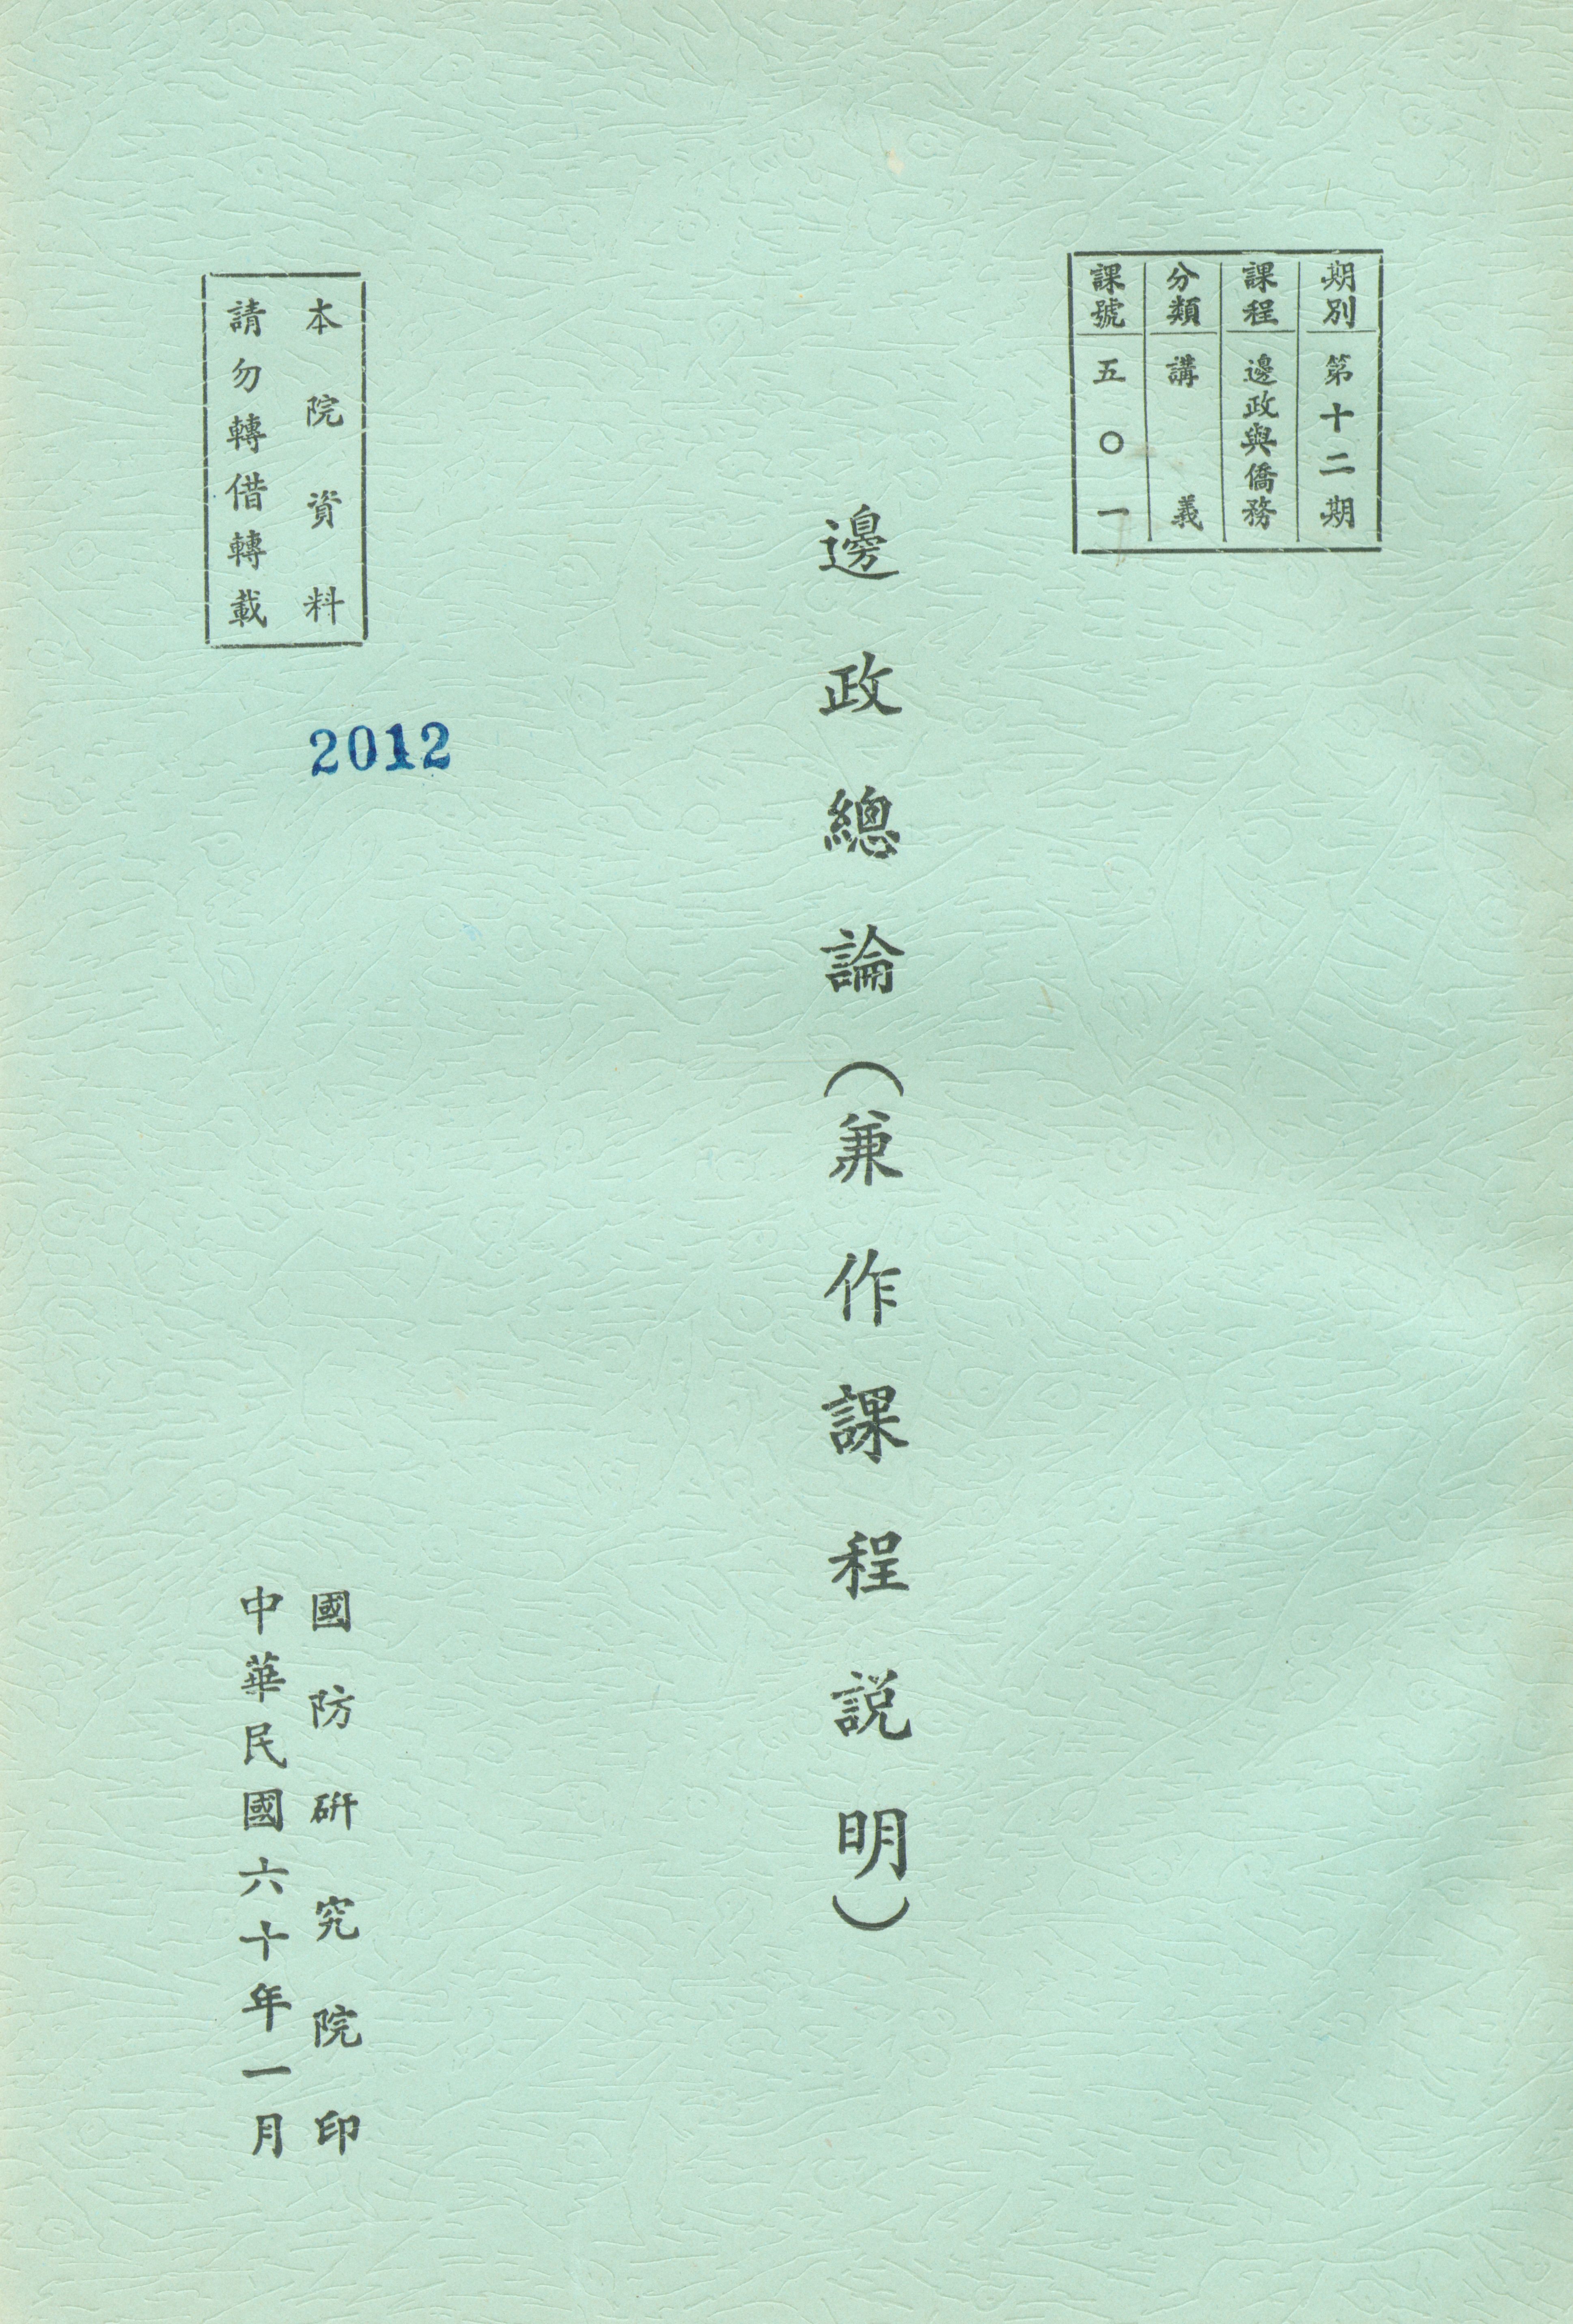 期別 第十二期
課程 邊政與僑務
分類 講義
課號 五〇一
邊政總論(兼作課程説明)
本院資料
請勿轉借轉載
2012
國防研究院印
中華民國六十年一月